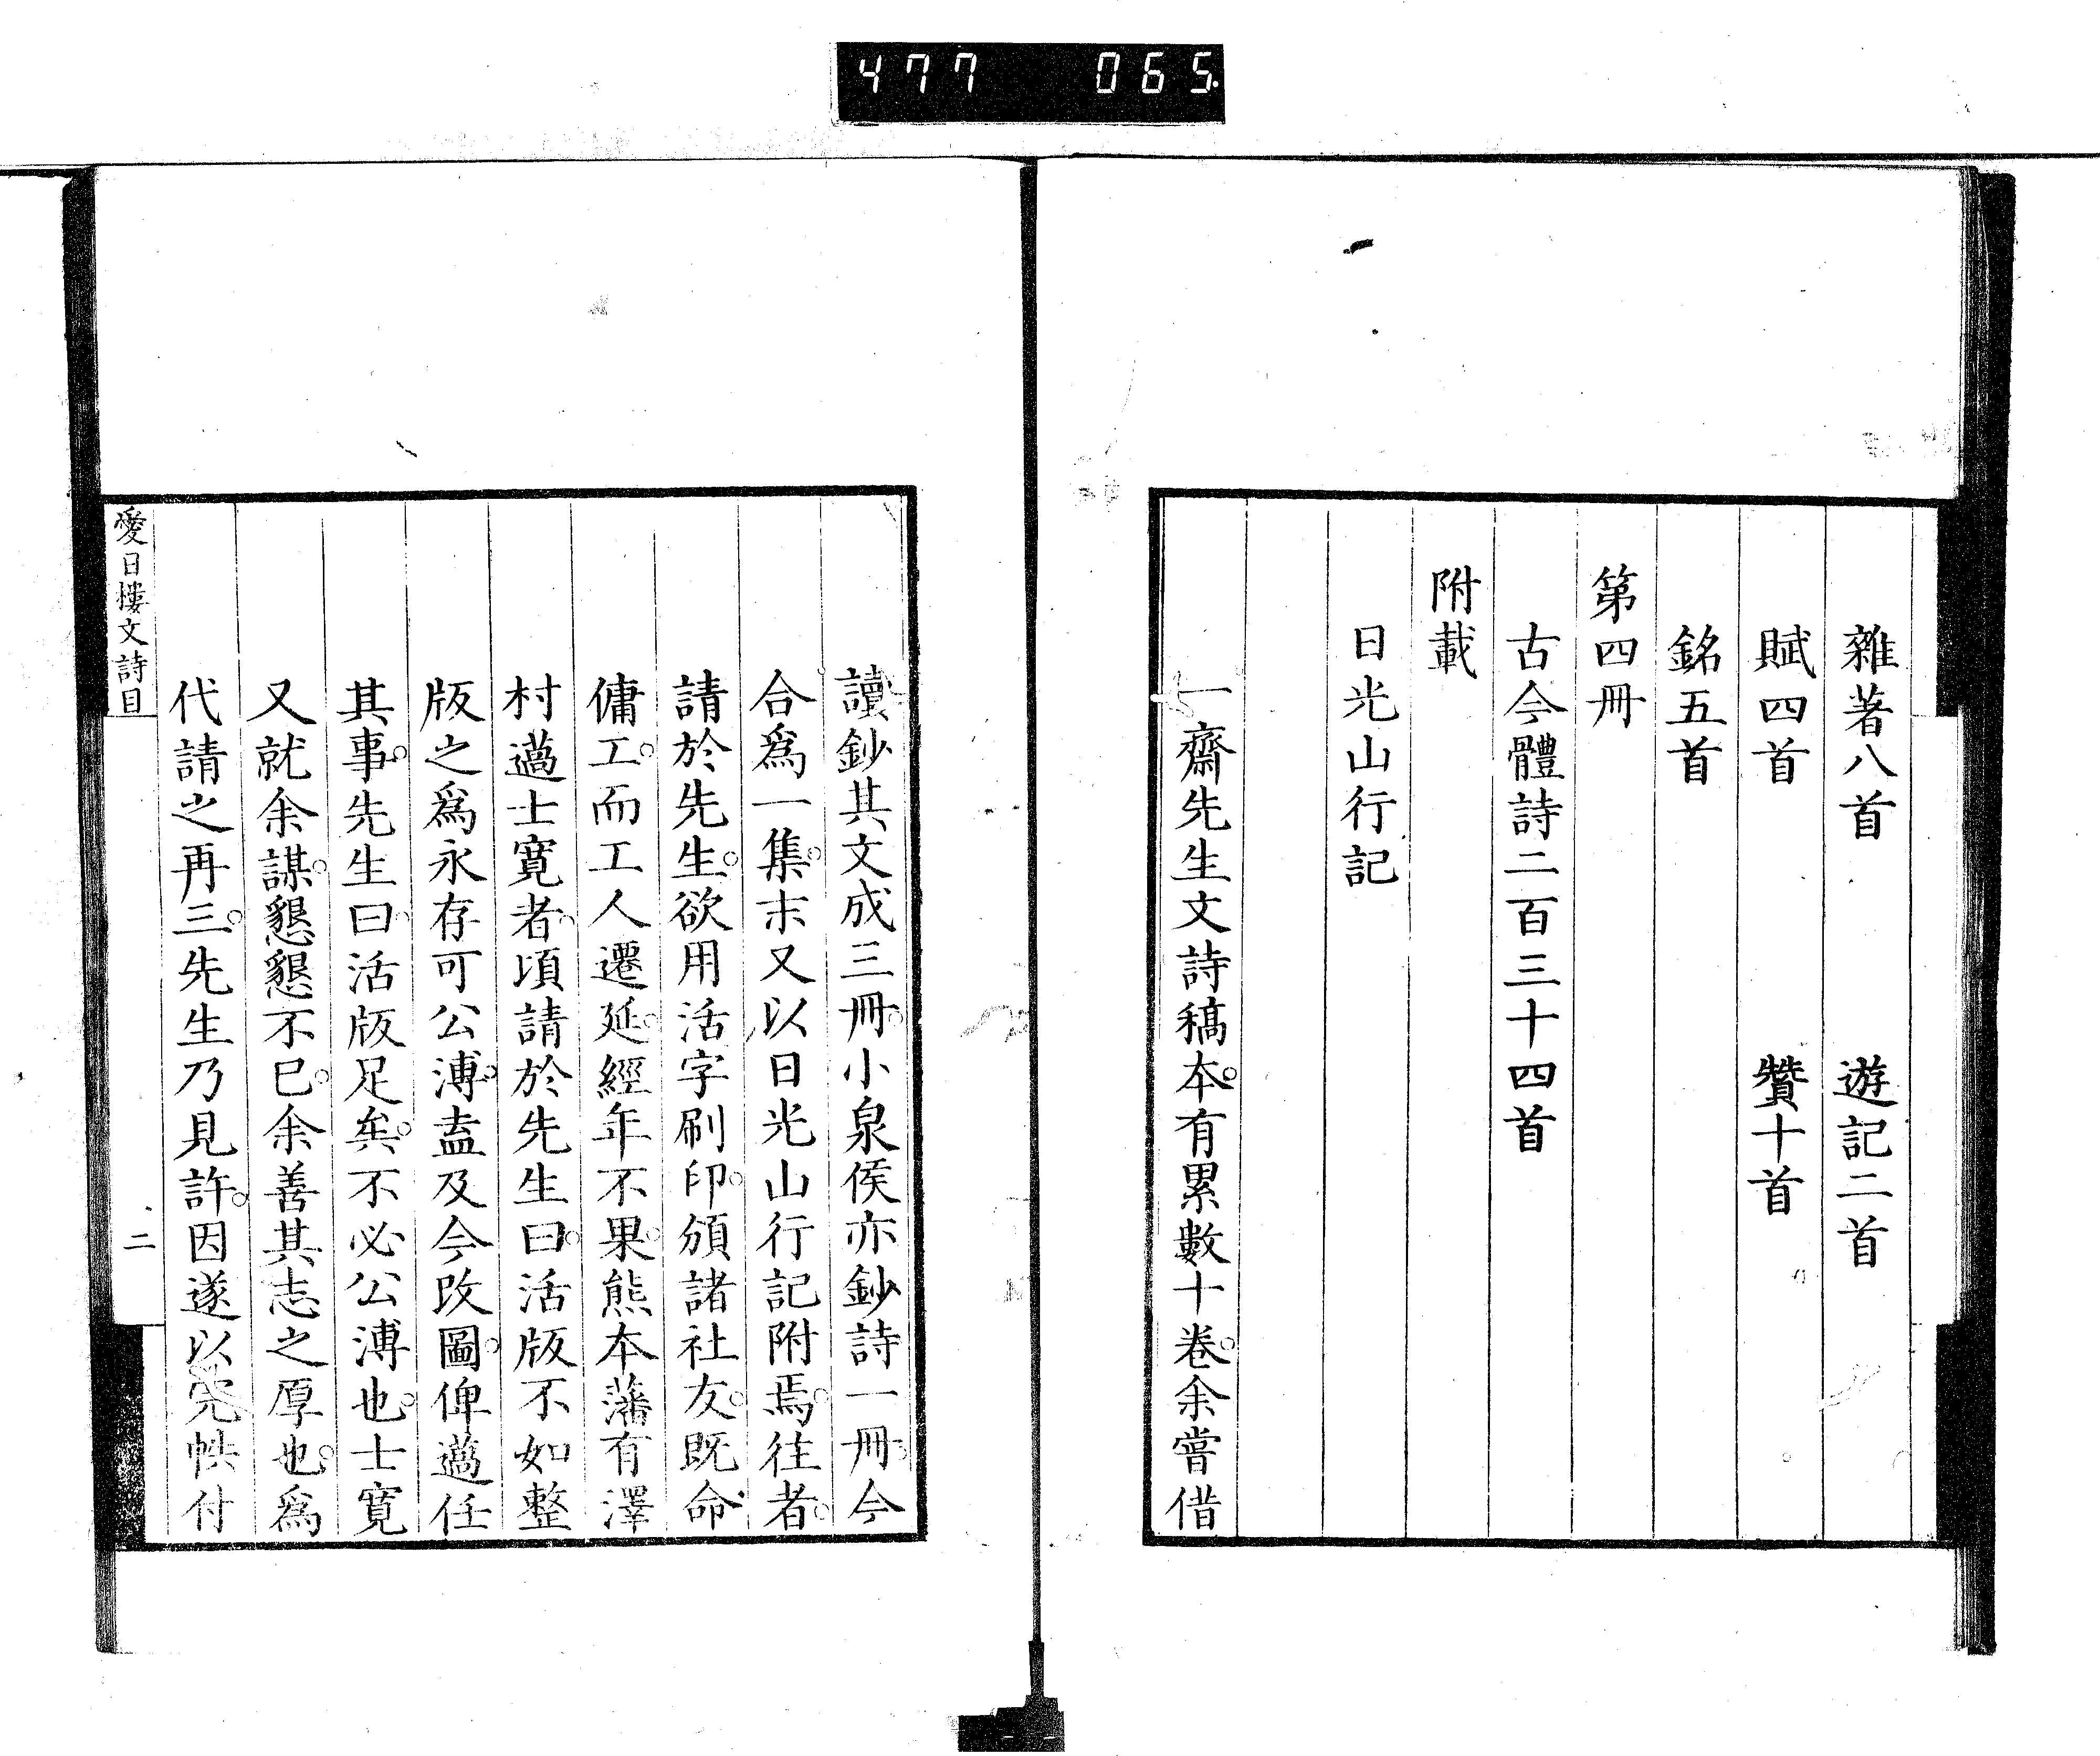 477 065
雜著八首 遊記二首
賦四首 贊十首
銘五首
第四冊
古今體詩二百三十四首
附載
日光山行記
一齋先生文詩稿本。有累數十卷。余嘗借
讀鈔其文成三冊。小泉侯亦鈔詩一冊。今
合爲一集。末又以日光山行記附焉。往者。
請於先生。欲用活字刷印。頒諸社友。既命
傭工。而工人遷延。經年不果。熊本藩有澤
村邁士寬者。頃請於先生曰。活版不如整
版之爲永存可公溥。盍及今改圖。俾邁任
其事。先生曰。活版足矣。不必公溥也。士寬
又就余謀。懇懇不已。余善其志之厚也。爲
代請之再三。先生乃見許。因遂以完帙付
愛日樓文詩目
二